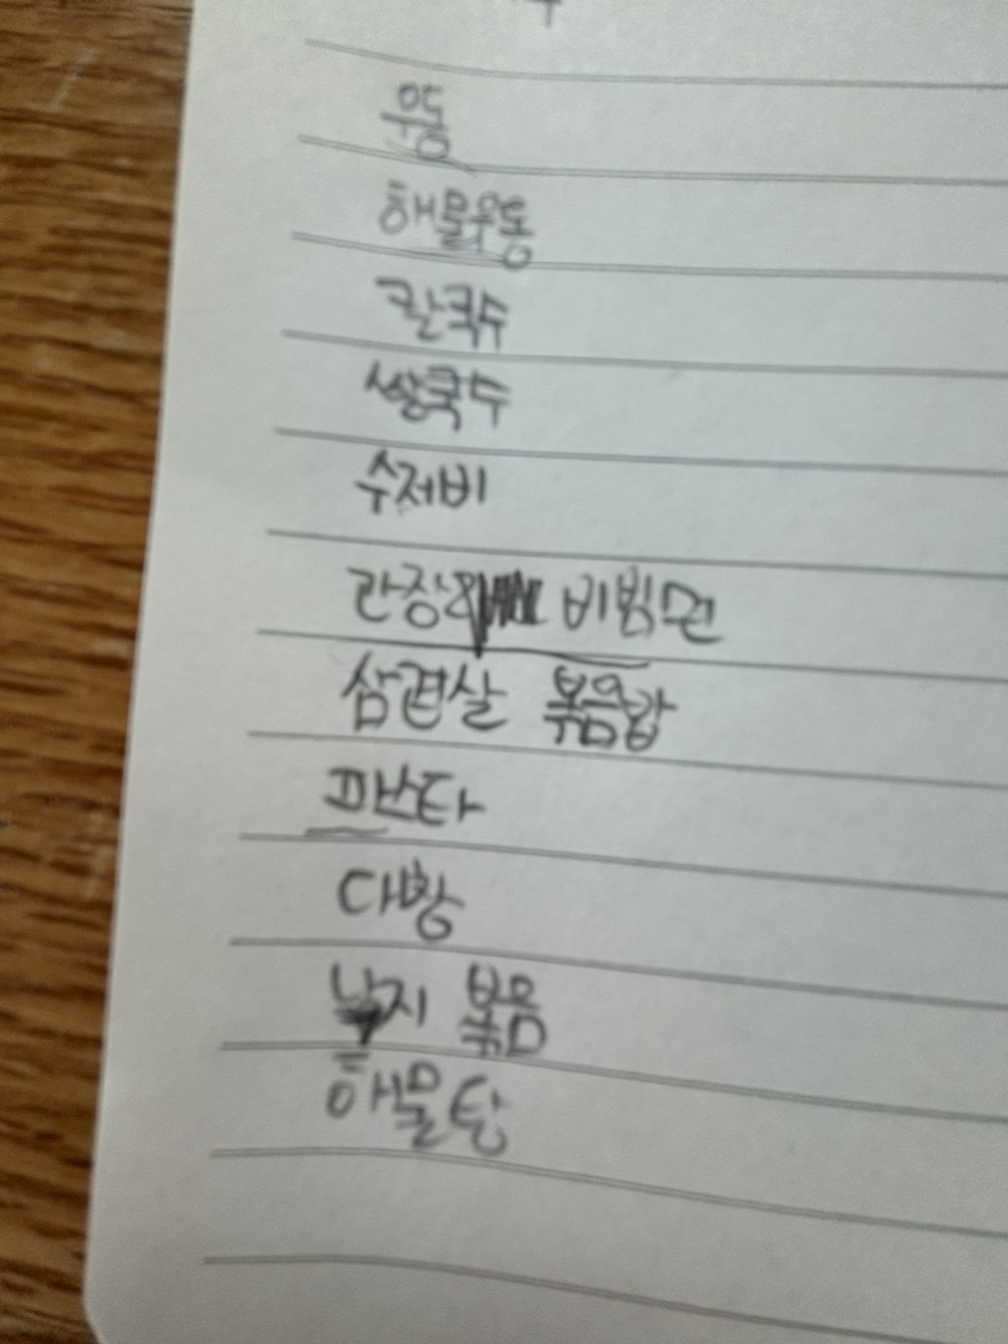 우동
해물우동
칼국수
쌀국수
수제비
간장 비빔면
삼겹살 볶음밥
판타
다방
낙지 볶음
해물탕